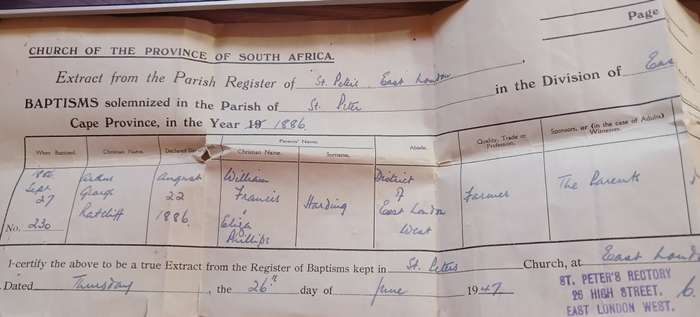 Page
CHURCH OF THE PROVINCE OF SOUTH AFRICA.
Extract from the Parish Register of St. Peters East London in the Division of Eas
BAPTISMS solemnized in the Parish of St. Peter
Cape Province, in the Year 19 1886
When Baptized. Christian Name. Declared Parents' Names. Christian Name. Surname. Abode. Quality, Trade or Profession. Sponsors, or (in the case of Adults) Witnesses.
1886 Sept 27 George Ratcliff August 22 1886. William Francis & Eliza Phillips Harding District of East London West Farmer The Parents
No. 230
I certify the above to be a true Extract from the Register of Baptisms kept in St. Peters Church, at East Lond
Dated Thursday, the 26th day of June 1947
ST. PETER'S RECTORY
26 HIGH STREET.
EAST LONDON WEST.